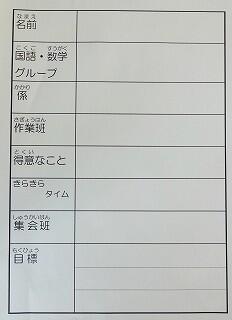 なまえ
名前
こくご すうがく
国語・数学
グループ
かかり
係
さぎょうはん
作業班
とくい
得意なこと
きらきら
タイム
しゅうかいはん
集会班
もくひょう
目標